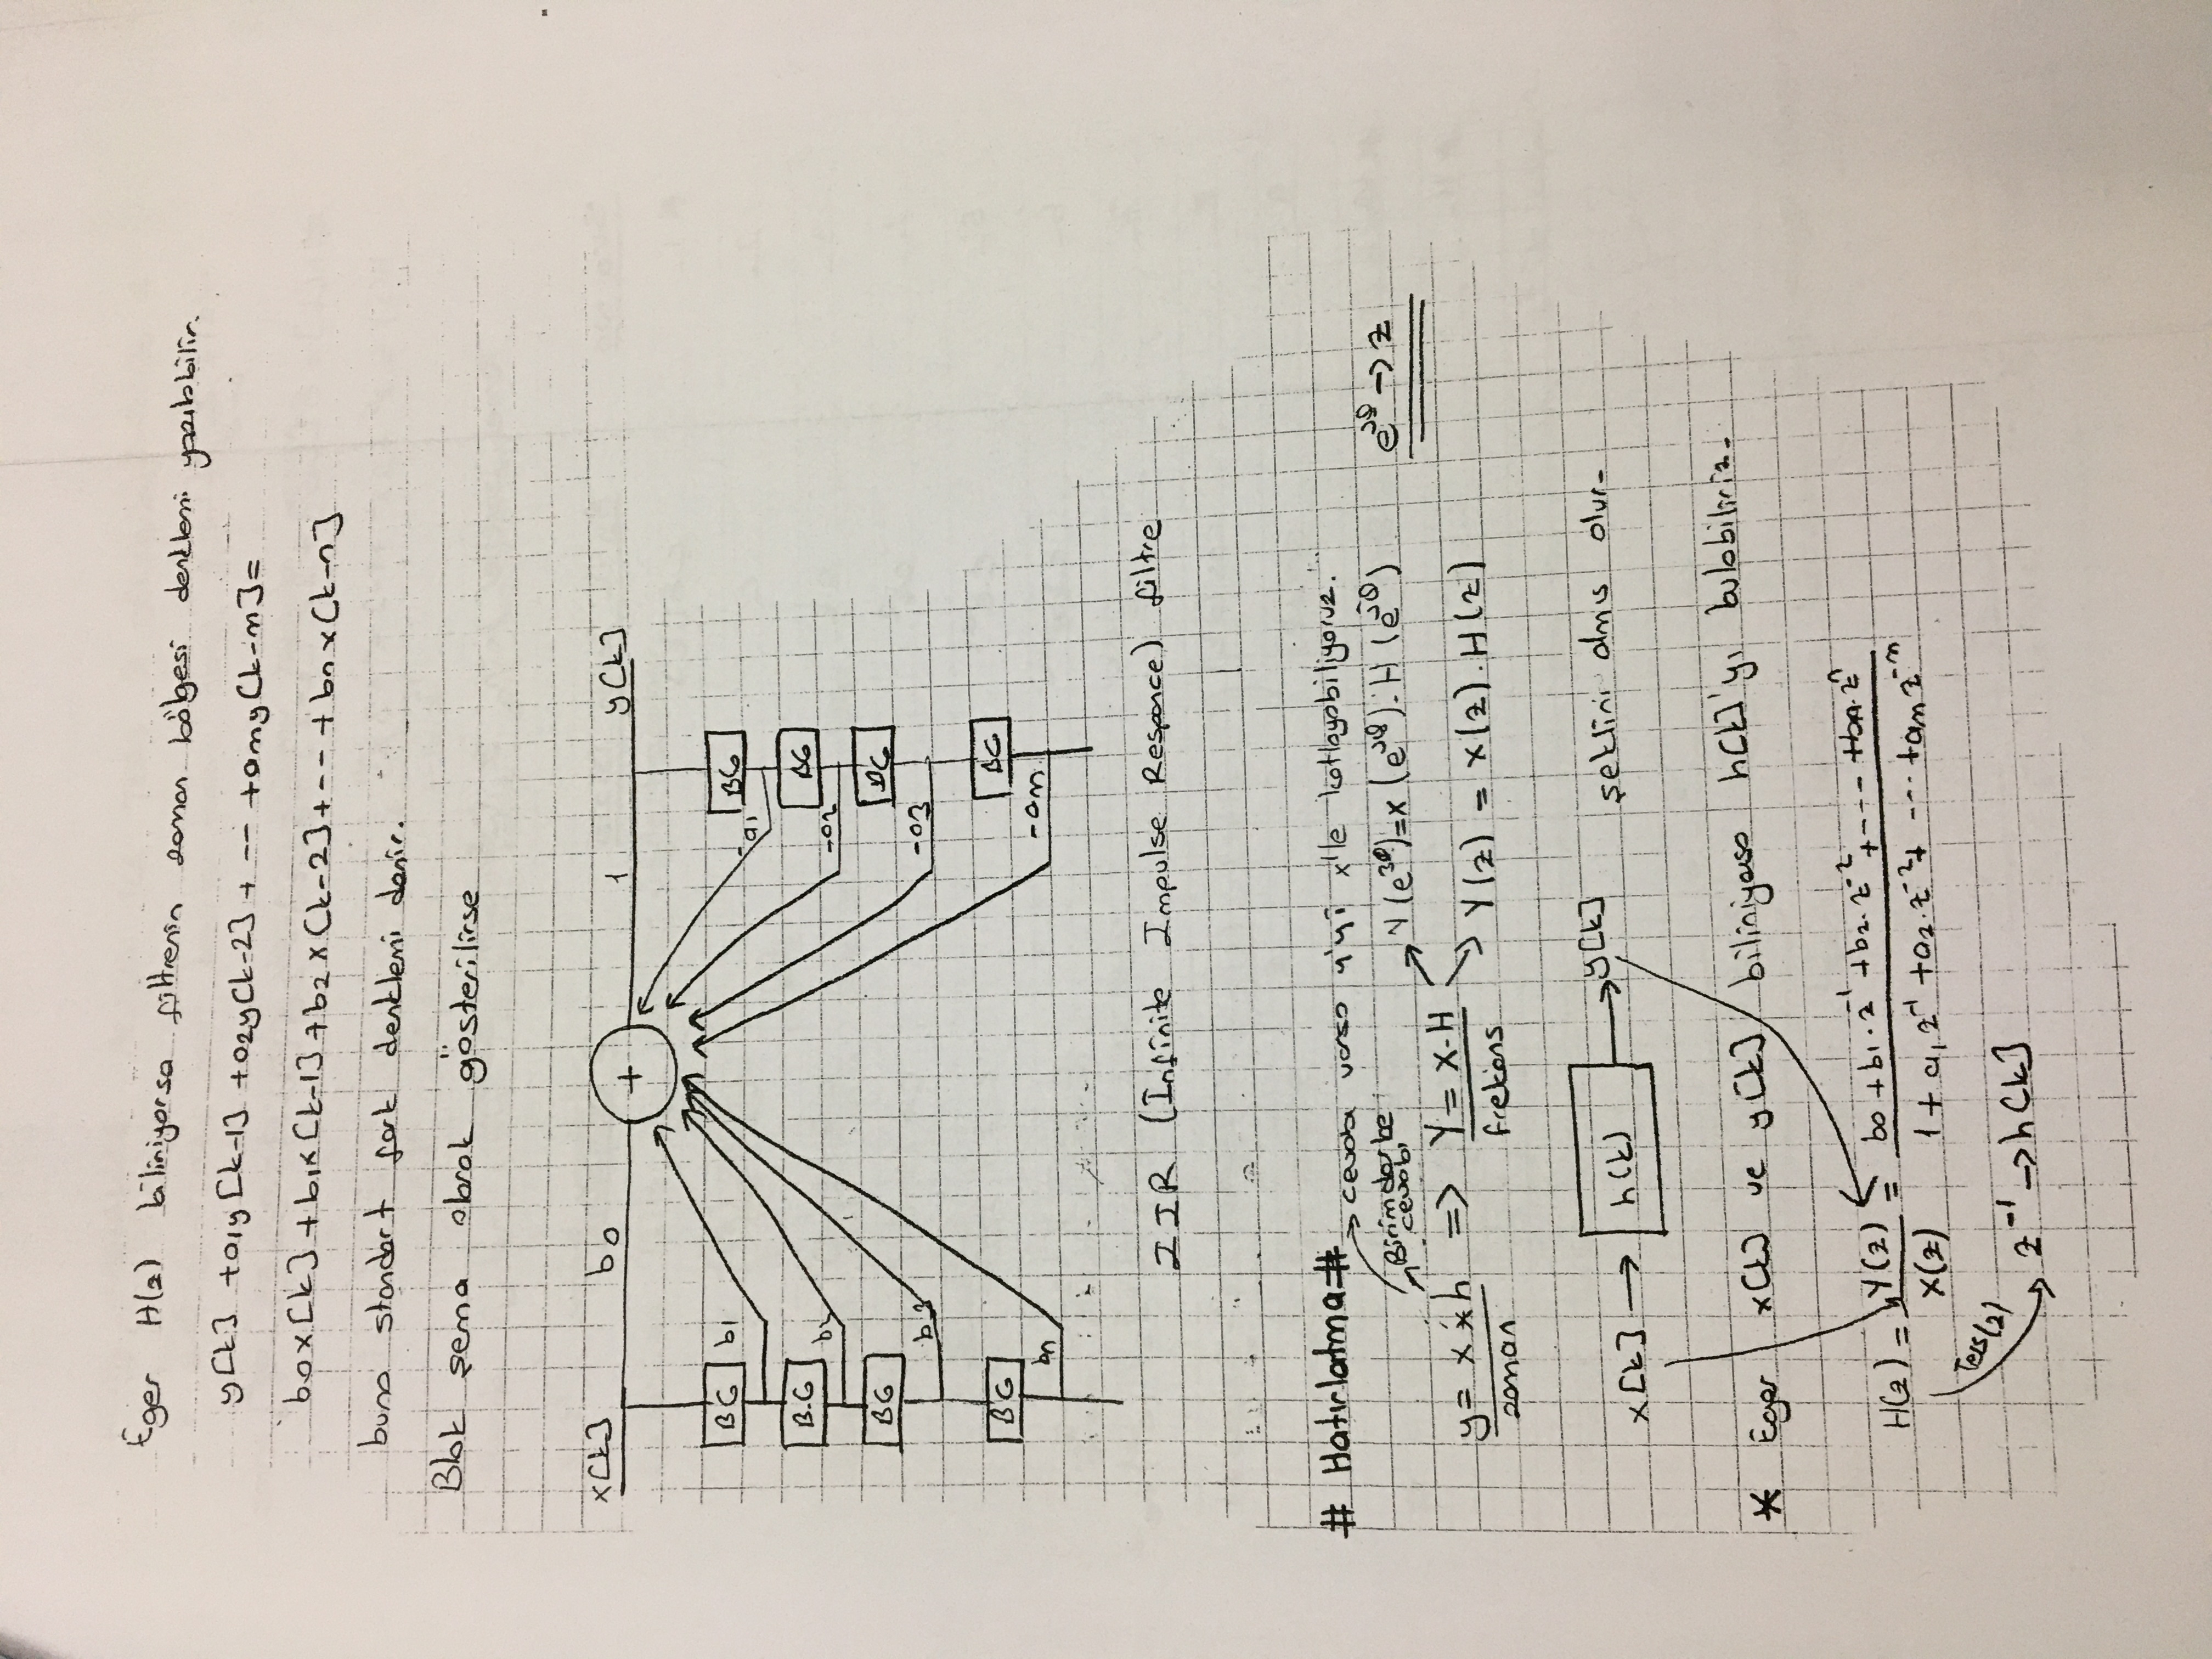 Eger H(z) biliniyorsa filtrenin zaman bölgesi denklemi yazılabilir.
y[k] +a1y[k-1] +a2y[k-2] + -- +amy[k-m]=
b0x[k] +b1x[k-1] +b2x[k-2]+-- + bnx[k-n]
buna standart fark denklemi denir.
Blok şema olarak gösterilirse
x[k] b0 + 1 y[k]
BG b1 -a1 BG
B.G b2 -a2 BG
BG b3 -a3 BG
BG bn -am BG
IIR (Infinite Impulse Responce) filtre
# Hatırlatma #
cevabı varsa y'yi x'le katlayabiliyoruz.
Birim darbe
cevabı
y = x * h => Y = X.H
zaman frekans
Y(e^jθ)=x(e^jθ).H(e^jθ) e^jθ -> z
Y(z) = X(z).H(z)
x[k] → h(k) → y[k] şeklini almıs olur.
* Eger x[k] ve y[k] biliniyorsa h[k]'yı bulabiliriz.
H(z) = Y(z)/X(z) = b0 +b1.z^-1 +b2.z^-2 +--- +bn.z^n / 1 + a1z^-1 +a2.z^-2+ --- +amz^-m
Ters(z)
z^-1 → h[k]